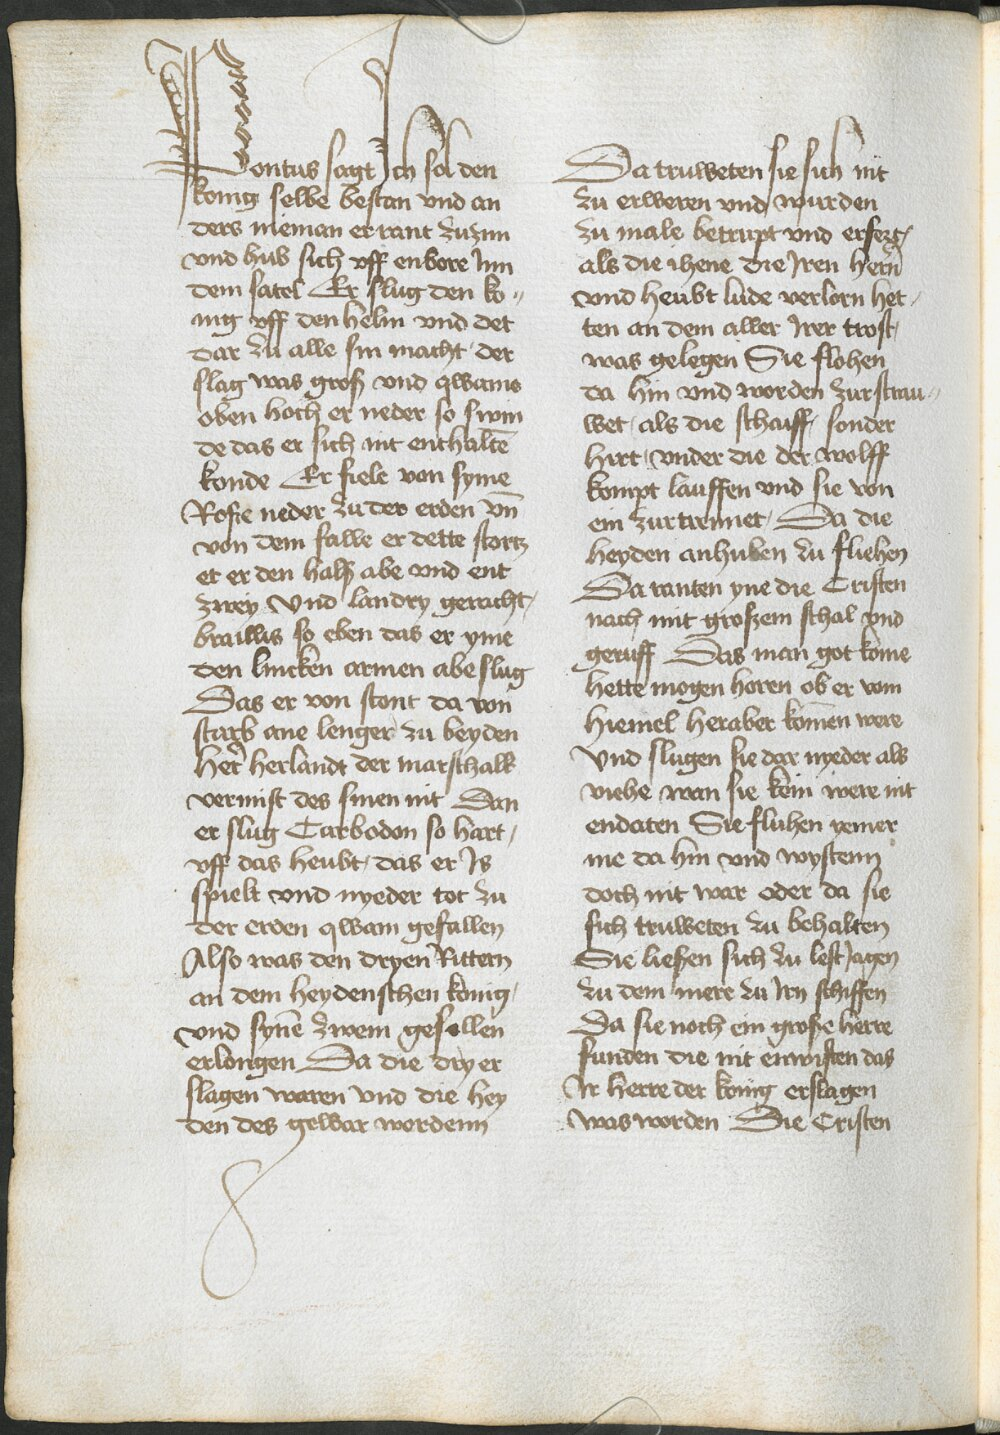 Pontus sagt Ich sol den
konig selbe bestan vnd an
ders nieman er rant zu zim
vnd hub sich vff enbore Inn
dem satel Er slug den ko„
nig vff den helm vnd det
dar zu alle sin macht der
slag was groß vnd qwame
oben hoch er neder so swin
de das er sich nit enthaltē
konde Er fiele von syme
Roße neder zu der erden vn̄
von dem falle er dette stortz
et er den halß abe vnd ent
zwey Vnd landry geracht
braillis so eben das er yme
den lincken armen abe slug
Das er von stont da von
starb ane lenger zu beyden
Her herlandt der marschalk
vermist des sinen nit Dan
er slug Carbodon so hart
vff das heubt das er Is
spielt vnd nyeder tot zu
der erden qwam gefallen
Also was den dryen Rittern
an dem heydenschen konig
vnd synē zwein gesellen
erlongen Da die dry er
slagen waren vnd die hey
den des gewar wordenn
Da truweten sie sich nit
zu erweren vnd wurden
zu male betrupt vnd erfert
als die ihene die Iren hern
vnd heubt lude verlorn het
ten an dem aller Irer trost
was gelegen Sie flohen
da hin vnd worden zurstrau„
wet als die schaiff sonder
hirt vnder die der wolff
kompt lauffen vnd sie von
ein zurtrennet Da die
heyden anhuben zu fliehen
Da ranten yne die Cristen
nach mit großem schal vnd
geruff Das man got kome
hette mogen horen ob er vom
hiemel heraber komen were
Vnd slugen sie dar nyeder als
viehe wan sie kein were nit
endaten Sie fluhen yemer
me da hin vnd wystenn
doch nit war oder da sie
sich truweten zu behalten
Sie ließen sich zu lest Jagen
zu dem mere zu Irn schiffen
Da sie noch ein große herre
funden die nit enwisten das
Ir herre der konig erslagen
was worden Die Cristen